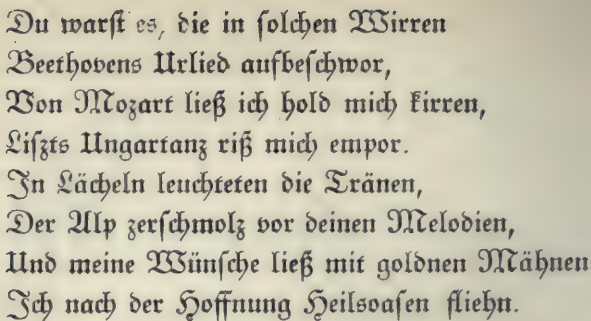 Du warst es, die in solchen Wirren
Beethovens Urlied aufbeschwor,
Von Mozart ließ ich hold mich kirren,
Liszts Ungartanz riß mich empor.
In Lächeln leuchteten die Tränen,
Der Alp zerschmolz vor deinen Melodien,
Und meine Wünsche ließ mit goldnen Mähnen
Ich nach der Hoffnung Heilsoasen fliehn.